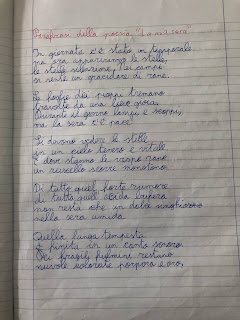 Parafrasi della poesia "La mia sera"
In giornata c'è stato un temporale
ma ora appariranno le stelle,
le stelle silenziose. Nei campi
si sente un gracidare di rane.
Le foglie dei pioppi tremano
travolte da una lieve gioia.
Durante il giorno lampi e scoppi,
ma la sera c'è pace.
Si devono vedere le stelle
in un cielo tenero e vitale.
E dove stanno le rane
un ruscello scorre monotono.
Di tutto quel forte rumore
di tutta quella bufera
non resta che un dolce singhiozzo
nella sera umida.
Quella lunga tempesta
è finita in un canto sonoro.
Dei fragili fulmini restano
nuvole colorate porpora e oro.